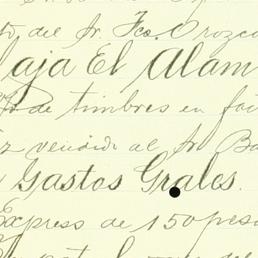 del Sr. Fco. Orozco
aja El Alam
de timbres en
vendida al Sr Ba
Gastos Grales.
Express de 150 pesos